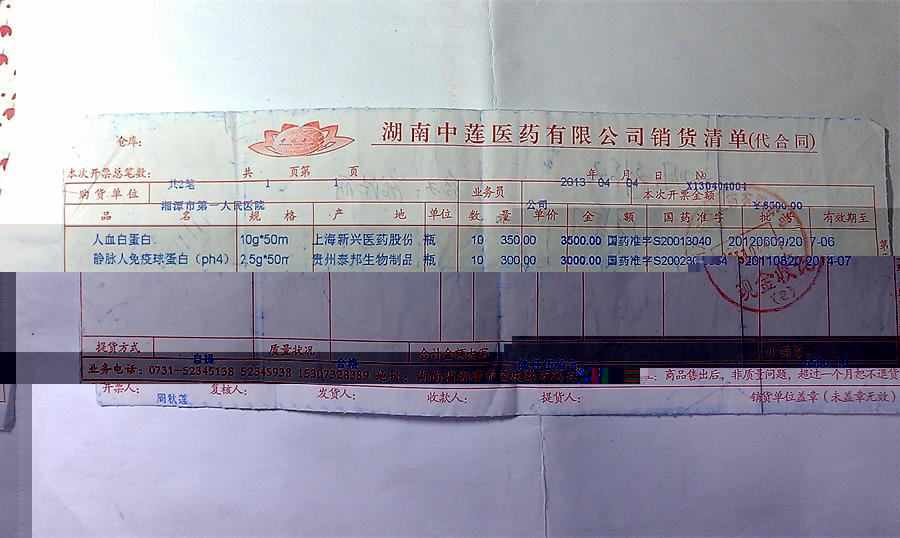 湖南中莲医药有限公司销货清单(代合同)
仓库:
本次开票总笔数: 共 页第 页 年 月 日 No
共2笔 1 1 2013 04 04 X130404004
购货单位 业务员 本次开票金额
湘潭市第一人民医院 公司 ¥6500.00
品 名 规 格 产 地 单位 数 量 单价 金 额 国药准字 批号 有效期至
人血白蛋白 10g*50m 上海新兴医药股份 瓶 10 350.00 3500.00 国药准字S20013040 20120609/20 7-06
静脉人免疫球蛋白(ph4) 2.5g*50m 贵州泰邦生物制品 瓶 10 300.00 3000.00 国药准字 20110820 2014-07
现金收讫
(2)
提货方式 质量状况 合计金额大写
自提 合格
业务电话: 0731-52345138 52345938 15307328389 地址: 湖南省湘潭市
商品售出后,非质量问题,超过一个月恕不退货
开票人: 复核人: 发货人: 收款人: 提货人: 销货单位盖章(未盖章无效)
周秋莲